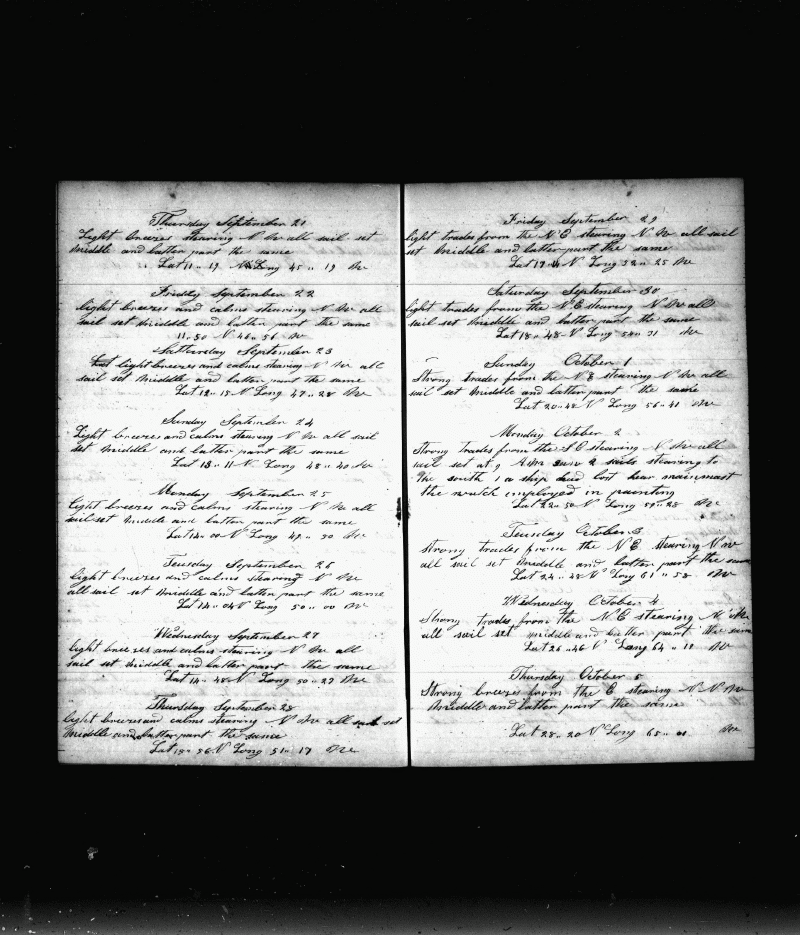 Thursday September 21
Light breezes stearing N W all sail set
middle and latter part the same
Lat 11 " 19 N Long 45 " 19 W
Friday September 22
light breezes and calms stearing N W all
sail set middle and latter part the same
11 " 50 N 46 " 56 W
Satturday September 23
light breezes and calms stearing N W all
sail set middle and latter part the same
Lat 12 " 15 N Long 47 " 28 W
Sunday September 24
Light breezes and calms stearing N W all sail
set middle and latter part the same
Lat 13 " 11 N Long 48 " 40 W
Monday September 25
light breezes and calms stearing N W all
sail set middle and latter part the same
Lat 14 " 00 N Long 49 " 30 W
Tuesday September 26
light breezes and calms stearing N W
all sail set middle and latter part the same
Lat 14 " 04 N Long 50 " 00 W
Wednesday September 27
light breezes and calms stearing N W all
sail set middle and latter part the same
Lat 14 " 48 N Long 50 " 27 W
Thursday September 28
light breezes and calms stearing N W all sail set
middle and latter part the same
Lat 56 N Long 51 " 17 W
Friday September 29
light trades from the N E stearing N W all sail
set middle and latter part the same
Lat 17 N Long 52 " 25 W
Saturday September 30
light trades from the N E stearing N W all
sail set middle and latter part the same
Lat 18 " 48 N Long 54 " 31 W
Sunday October 1
Strong trades from the N E stearing N W all
sail set middle and latter part the same
Lat 20 " 48 N Long 56 " 41 W
Monday October 2
Strong trades from the S E stearing N W all
sail set at 9 A M saw 2 sails stearing to
the south 1 a ship had lost hear mainmast
the watch employed in painting
Lat 22 " 50 N Long 59 " 28 W
Tuesday October 3
Strong trades from the N E stearing N W
all sail set middle and latter part the same
Lat 24 " 48 N Long 61 " 58 W
Wednesday October 4
Strong trades from the N E stearing
all sail set middle and latter part the same
Lat 26 " 46 N Long 64 " 12 W
Thursday October 5
Strong breezes from the E stearing N N W
middle and latter part the same
Lat 28 " 20 N Long 65 " 01 W